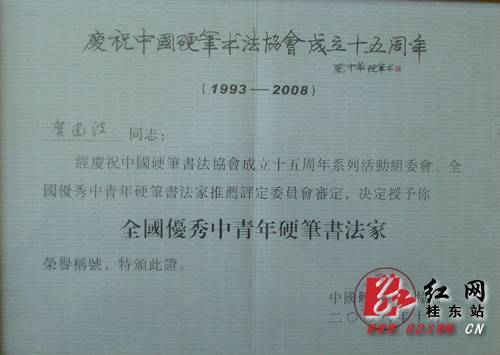 慶祝中國硬筆书法協會成立十五周年
(1993—2008)
賀建波 同志:
經慶祝中國硬筆書法協會成立十五周年系列活動組委會、全
國優秀中青年硬筆書法家推薦評定委員會審定,决定授予你
全國優秀中青年硬筆書法家
榮譽稱號,特頒此證。
中國硬
二〇〇八年十
红网
桂东站
WWW.GDXWW.CN